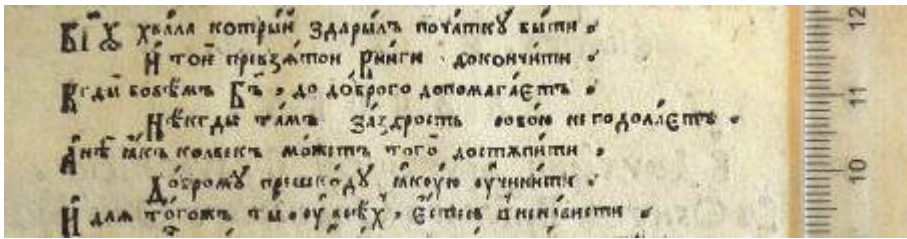 Бг҃ꙋ хвала которы́й здары́лъ поча́ткꙋ бы́ти ,
И҆ той превзѧ́той кни́ги докончи́ти ,
Кгды̀ бовѣ́мъ Бг҃ъ , до до́брого допомага́єтъ ,
Нѣ́кгды та́мъ за́здрость собо́ю не подола́єтъ ,
А҆нѣ̀ ꙗ҆́къ колвекъ мо́жетъ того̀ достꙋпи́ти ,
До́бромꙋ̀ прешко́дꙋ ꙗ҆кꙋ́ю ᲂу҆чини́ти ,
И҆ длѧ то́гожъ ты̀ , ᲂу҆ всѣ́хъ ,
12
11
10